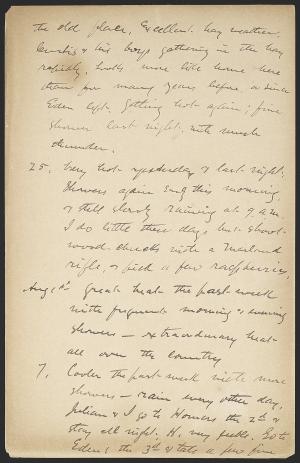 the old place. Excellent hay weather.
Curtis & his boys gathering in the hay
rapidly. Looks more like home here
than for many years before, or since
Eden left. Getting hot again; fine
shower last night, with much
thunder.
25. Very hot yesterday & last night.
Showers again this morning,
& still slowly raining at 9 a.m.
I do little these days, but shoot
wood-chucks with a
rifle, & pick a few raspberries,
Aug 1st great heat the past week
with frequent morning & evening
showers — extraordinary heat
all over the country
7. Cooler the past week with more
showers — rain every other day,
Julian & I go to Homers the 2d &
stay all night. H. very feeble. Go to
Edens the 3d & take a few fine